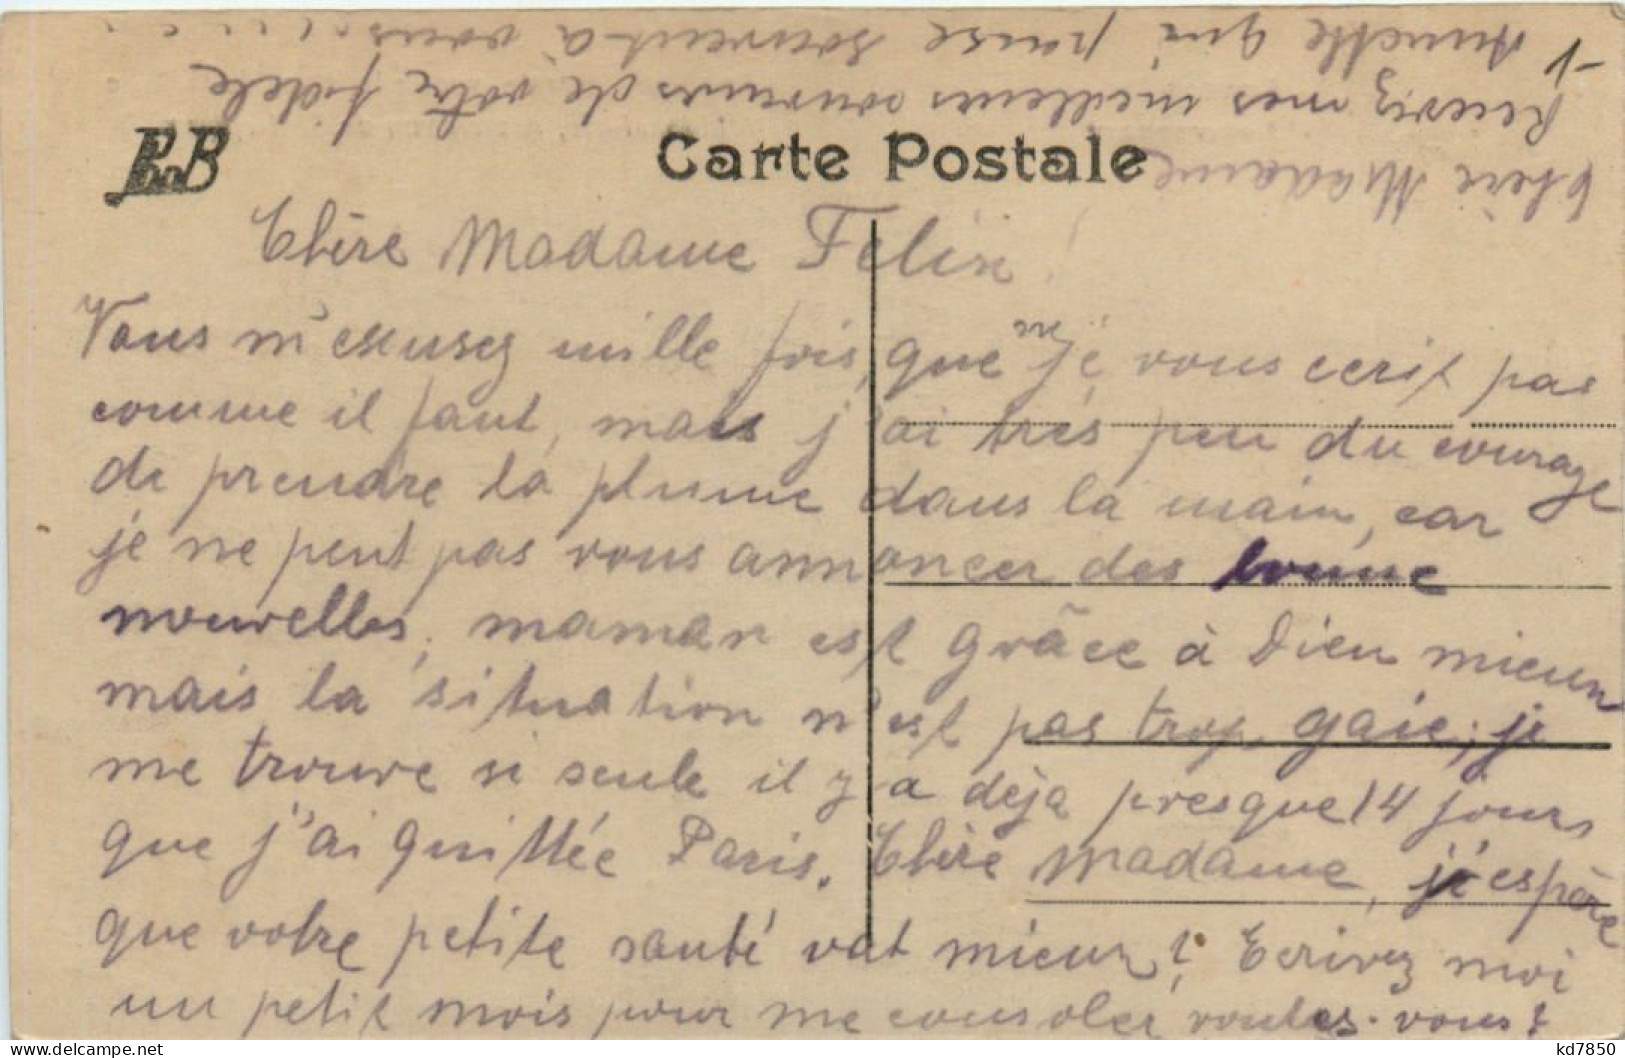 BnB
Carte Postale
Chère Madame Felix !
Vous m'excusez mille fois, que je ne vous ecrit pas
comme il faut, mais j'ai très peu du courage
de prendre la plume dans la main, car
je ne peut pas vous annoncer des bonne
nouvelles, maman est grâce à Dieu mieux
mais la situation n'est pas trop gaie; je
me trouve si seule il y a déja presque 14 jours
que j'ai quittée Paris. Chère Madame, j'espère
que votre petite santé vat mieux? Ecrivez moi
un petit mois pour me consoler voulez-vous?
Chère Madame
Recevez mes meilleurs souvenirs de votre fidele
Annette qui pense souvent à vous...
kd7850
www.delcampe.net